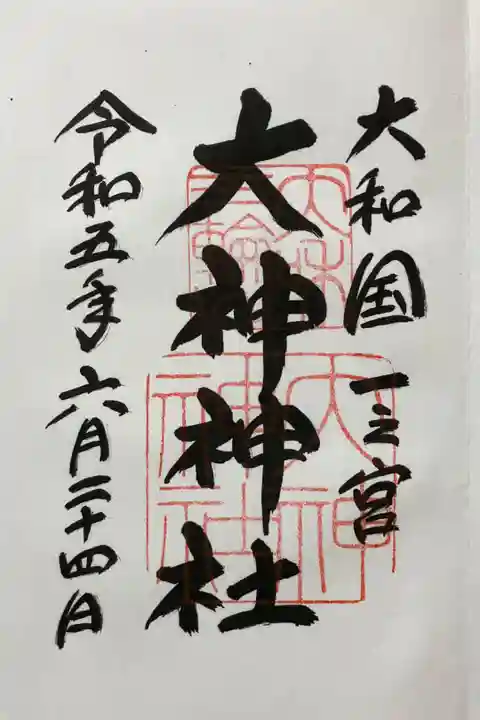 大和国 一之宮
大神神社
令和五年六月二十四日